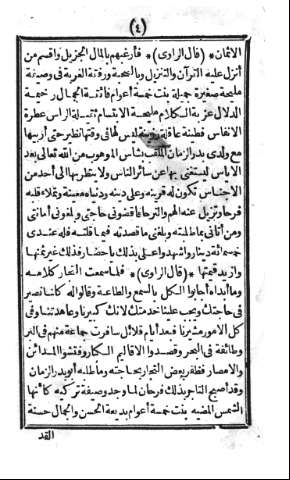 (٤)
الاثمان * (قال الراوى) * فأرغبهم بالمال الجزيل واقسم من
أنزل عليه القرآن والتنزيل وبالصحبة ورقة الغربة فى وصيفة
مليحة صغيرة جميلة بنت خمسة أعوام فائقة الجمال رخيمة
الدلال عذبة الكلام مليحة الابتسام عطرة
الانفاس فطينة عاقلة ليس لها فى وقتها نظير حتى أربيها
مع ولدى بدر الزمان الملقب بشاس الموهوب من الله تعالى بعد
الاياس ليستغنى بها عن سائر الناس ولا ينظر بها الى أحد من
الاجناس تكون له قرينة وعلى دينه ودنياه معينة وتملأ قلبه
فرحا وتزيل عنه الهم والترحا فاقضونى حاجتى وبلغونى أمانتى
ومن أتانى بما طلبته وبلغنى ما قصدته فيما قلته فله عندى
خمسمائة دينار واشهدوا على بذلك يا حضار فذلك غير ثمنها
وازيد قيمتها * (قال الراوى) * فلما سمعت التجار كلامه
وما أبداه أجابوا الكل بالسمع والطاعة وقالوا له كلنا نصير
فى حاجتك ويجب علينا خدمتك لانك كبيرنا وعاهدتنا وفى
كل الامور مشيرنا فبعد أيام قلائل سافرت جماعة منهم فى البر
وطائفة فى البحر وقصدوا الاقاليم الكبار وفتشوا المدائن
والامصار فظفر بعض التجار بحاجته وما طلبه أبو بدر الزمان
وقد أصبح التاجر بذلك فرحان لما وجد وصيفة تركية كأنها
الشمس المضيه بنت خمسة أعوام بديعة الحسن والجمال حسنة
القد